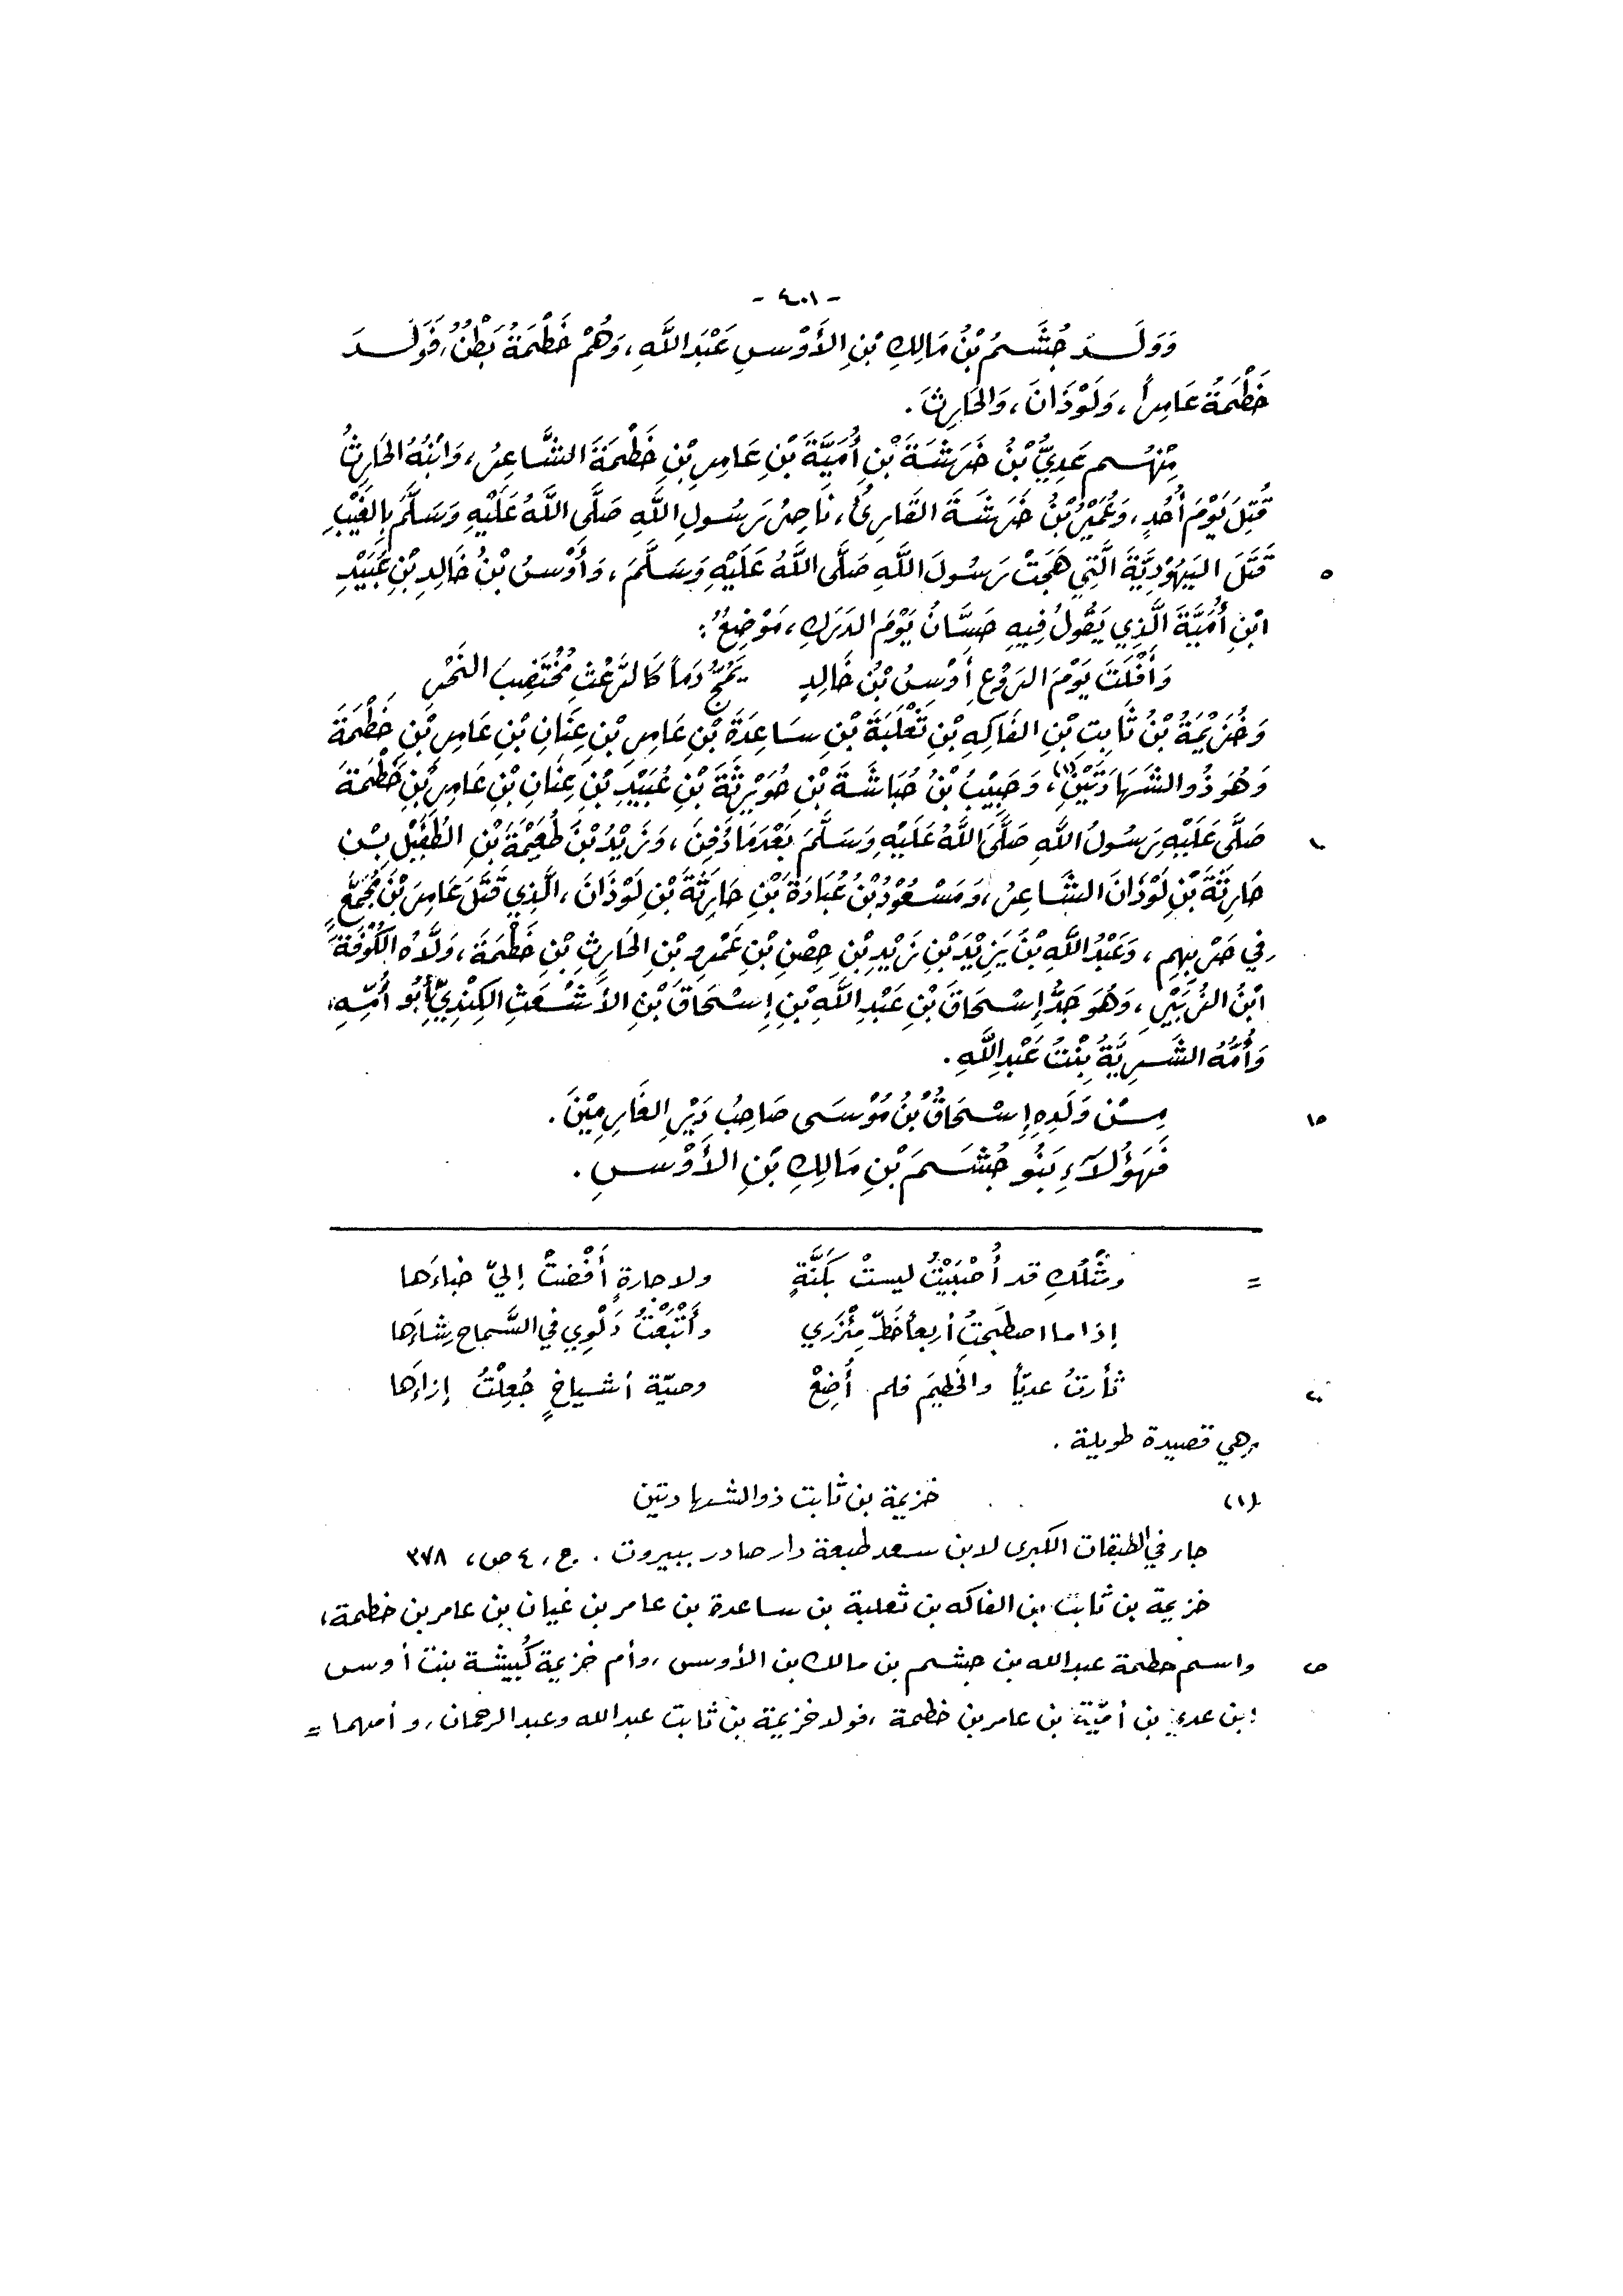 - ٤٠١ -
وَوَلَدَ جُشَمُ بْنُ مَالِكِ بْنِ الأَوْسِ عَبْدَ اللَّهِ، وَهُمْ خَطْمَةُ بَطْنٌ، فَوَلَدَ
خَطْمَةُ عَامِراً، وَلَوْذَانَ، وَالحَارِثَ.
مِنْهُم عَدِيُّ بْنُ خَرَشَةَ بْنِ أُمَيَّةَ بْنِ عَامِرِ بْنِ خَطْمَةَ الشَّاعِرُ، وَابْنُهُ الحَارِثُ
قُتِلَ يَوْمَ أُحُدٍ، وَعُمَيْرُ بْنُ خَرَشَةَ القَارِئُ، نَاصِرُ رَسُولِ اللَّهِ صَلَّى اللَّهُ عَلَيْهِ وَسَلَّمَ بِالغَيْبِ
قَتَلَ اليَهُوْدِيَّةَ الَّتِي هَجَتْ رَسُولَ اللَّهِ صَلَّى اللَّهُ عَلَيْهِ وَسَلَّمَ، وَأَوْسُ بْنُ خَالِدِ بْنِ عُبَيْدِ ٥
ابْنِ أُمَيَّةَ الَّذِي يَقُولُ فِيهِ حَسَّانُ يَوْمَ الدَرَكِ، مَوْضِعٌ:
وَأَفْلَتَ يَوْمَ الرَوْعِ أَوْسُ بْنُ خَالِدٍ يَمُجُّ دَماً كَالرَعْثِ مُخْتَضِبَ النَحْرِ
وَخُزَيْمَةُ بْنُ ثَابِتِ بْنِ الفَاكِهِ بْنِ ثَعْلَبَةَ بْنِ سَاعِدَةَ بْنِ عَامِرِ بْنِ عِنَانِ بْنِ عَامِرِ بْنِ خَطْمَةَ
وَهُوَ ذُو الشَهَادَتَيْنِ(١)، وَحَبِيْبُ بْنُ حُبَاشَةَ بْنِ حُوَيْرِثَةَ بْنِ عُبَيْدِ بْنِ عِنَانِ بْنِ عَامِرِ بْنِ خَطْمَةَ
صَلَّى عَلَيْهِ رَسُولُ اللَّهِ صَلَّى اللَّهُ عَلَيْهِ وَسَلَّمَ بَعْدَمَا دُفِنَ، وَزَيْدُ بْنُ طُعَيْمَةَ بْنِ الطُفَيْلِ بْنِ ١٠
حَارِثَةَ بْنِ لَوْذَانَ الشَّاعِرُ، وَمَسْعُوْدُ بْنُ عُبَادَةَ بْنِ حَارِثَةَ بْنِ لَوْذَانَ، الَّذِي قَتَلَ عَامِرَ بْنَ مُجَمِّعٍ
فِي حَرْبِهِم، وَعَبْدُ اللَّهِ بْنُ يَزِيْدَ بْنِ زَيْدِ بْنِ حِصْنِ بْنِ عَمْرِو بْنِ الحَارِثِ بْنِ خَطْمَةَ، وَلَّاهُ الكُوْفَةَ
ابْنُ الزُبَيْرِ، وَهُوَ جَدُّ إِسْحَاقَ بْنِ عَبْدِ اللَّهِ بْنِ إِسْحَاقَ بْنِ الأَشْعَثِ الكِنْدِيِّ أَبُو أُمِّهِ،
وَأُمُّهُ الشَرِيَّةُ بِنْتُ عَبْدِ اللَّهِ.
مِنْ وَلَدِهِ إِسْحَاقُ بْنُ مُوْسَى صَاحِبُ دَيْرِ الغَارِمِيْنَ. ١٥
فَهَؤُلَآءِ بَنُو جُشَمَ بْنِ مَالِكِ بْنِ الأَوْسِ.
= ومثْلُكِ قد أُحْبَيْتُ ليستْ بكَنَّةٍ ولا جارةٍ أَفْضتْ إليّ خباءَها
إذا ما اصطبحتُ أربعاً خَطّ مِئْزَري وأَتْبَعْتُ دَلْوي في السَّماح رِشاءَها
ثأرتُ عديّاً والخطيمَ فلم أُضِعْ وصيّة أشياخٍ جُعِلْتُ إزاءَها ٢٠
وهي قصيدة طويلة.
(١) خزيمة بن ثابت ذو الشهادتين
جاء في الطبقات الكبرى لابن سعد طبعة دار صادر ببيروت. ج، ٤ ص، ٣٧٨
خزيمة بن ثابت بن الفاكه بن ثعلبة بن ساعدة بن عامر بن غيان بن عامر بن خطمة،
واسم خطمة عبدالله بن جشم بن مالك بن الأوس، وأم خزيمة كُبيشة بنت أوس ٢٥
ابن عدي بن أميّة بن عامر بن خطمة، فولد خزيمة بن ثابت عبدالله وعبدالرحمان، وأمهما =